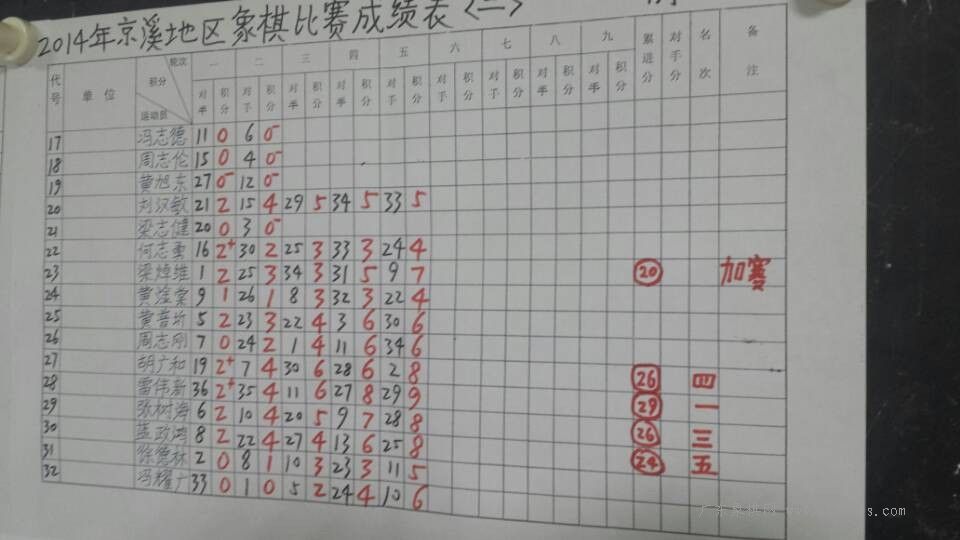 2014年京溪地区象棋比赛成绩表<二>
代号 单位 轮次 积分 运动员 一 二 三 四 五 六 七 八 九 累进分 对手分 名次 备注
对手 积分 对手 积分 对手 积分 对手 积分 对手 积分 对手 积分 对手 积分 对手 积分 对手 积分
17 冯志德 11 0 6 0
18 周志伦 15 0 4 0
19 黄旭东 27 0 12 0
20 刘汉敏 21 2 15 4 29 5 34 5 33 5
21 梁志健 20 0 3 0
22 何志勇 16 2+ 30 2 25 3 33 3 24 4
23 梁焯维 1 2 25 3 34 3 31 5 9 7 20 加赛
24 黄煌棠 9 1 26 1 8 3 32 3 22 4
25 黄普 5 2 23 3 22 4 3 6 30 6
26 周志刚 7 0 24 2 1 4 11 6 34 6
27 胡广和 19 2+ 7 4 30 6 28 6 2 8 26 四
28 雷伟新 36 2+ 35 4 11 6 27 8 29 9 29 一
29 张树海 6 2 10 4 20 5 9 7 28 8 26 三
30 蓝政鸿 8 2 22 4 27 4 13 6 25 8 24 五
31 徐德林 2 0 8 1 10 3 23 3 11 5
32 冯耀广 33 0 1 0 5 2 24 4 10 6